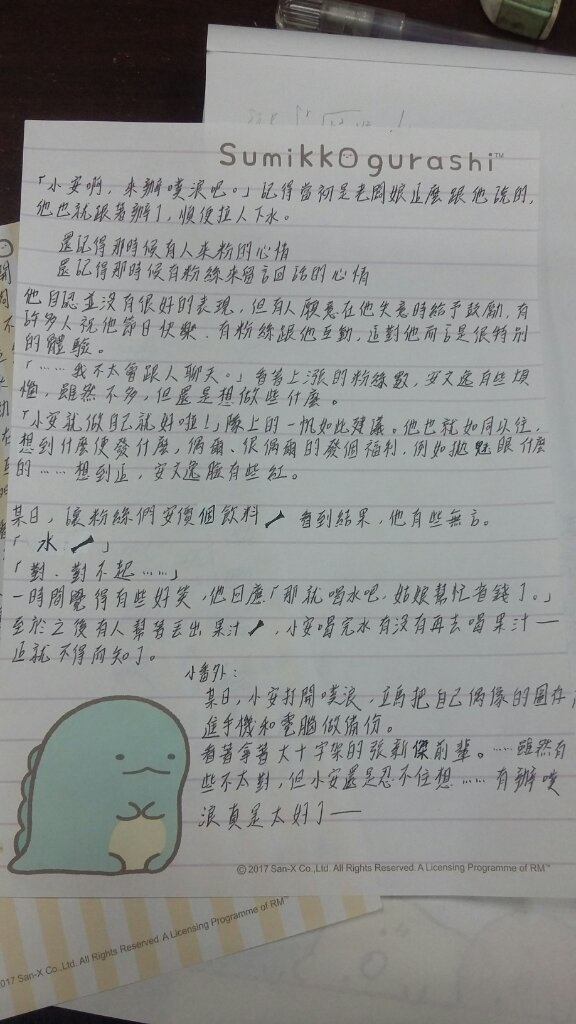 Sumikkogurashi™
「小安啊，來辦噗浪吧。」記得當初是老闆娘這麼跟他說的，
他也就跟著辦了，順便拉人下水。
還記得那時候有人來粉的心情
還記得那時候有粉絲來留言回話的心情
他自認並沒有很好的表現，但有人願意在他失意時給予鼓勵，有
許多人祝他節日快樂、有粉絲跟他互動，這對他而言是很特別
的體驗。
「……我不太會跟人聊天。」看著上漲的粉絲數，安文逸有些煩
惱，雖然不多，但還是想做些什麼。
「小安就做自己就好啦！」隊上的一帆如此建議。他也就如同以往，
想到什麼便發什麼，偶爾、很偶爾的發個福利，例如拋魅眼什麼
的……想到這，安文逸臉有些紅。
某日，讓粉絲們安價個飲料 看到結果，他有些無言。
「水 」
「對、對不起……」
一時間覺得有些好笑，他回應「那就喝水吧，姑娘幫忙省錢了。」
至於之後有人幫著丟出果汁 ，小安喝完水有沒有再去喝果汁—
這就不得而知了。
小番外：
某日，小安打開噗浪，立馬把自己偶像的圖存
進手機和電腦做備份。
看著拿著大十字架的張新傑前輩。……雖然有
些不太對，但小安還是忍不住想……有辦噗
浪真是太好了—
© 2017 San-X Co.,Ltd. All Rights Reserved. A Licensing Programme of RM™
2017 San-X Co.,Ltd. All Rights Reserved. A Licensing Programme of RM™